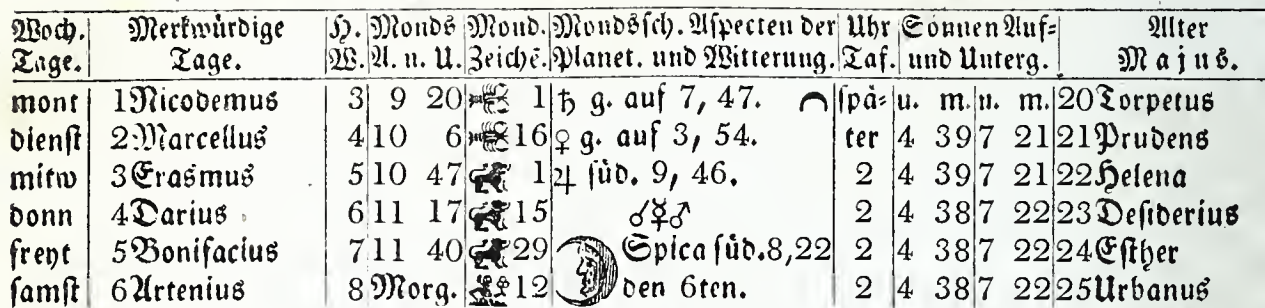 Woch. Merkwürdige H. Monds Mond. Mondssch. Aspecten der Uhr Sonnen Auf= Alter
Tage. Tage. W. A. n. U. Zeichē. Planet. und Witterung. Taf. und Unterg. Majus.
mont 1 Nicodemus 3 9 20 1 ♄ g. auf 7, 47. spä= u. m. u. m. 20 Torpetus
dienst 2 Marcellus 4 10 6 16 ♀ g. auf 3, 54. ter 4 39 7 21 21 Prudens
mitw 3 Erasmus 5 10 47 1 ♃ süd. 9, 46. 2 4 39 7 21 22 Helena
donn 4 Darius 6 11 17 15 ☌☿♂ 2 4 38 7 22 23 Desiderius
freyt 5 Bonifacius 7 11 40 29 Spica süd. 8,22 2 4 38 7 22 24 Esther
samst 6 Artenius 8 Morg. 12 den 6ten. 2 4 38 7 22 25 Urbanus